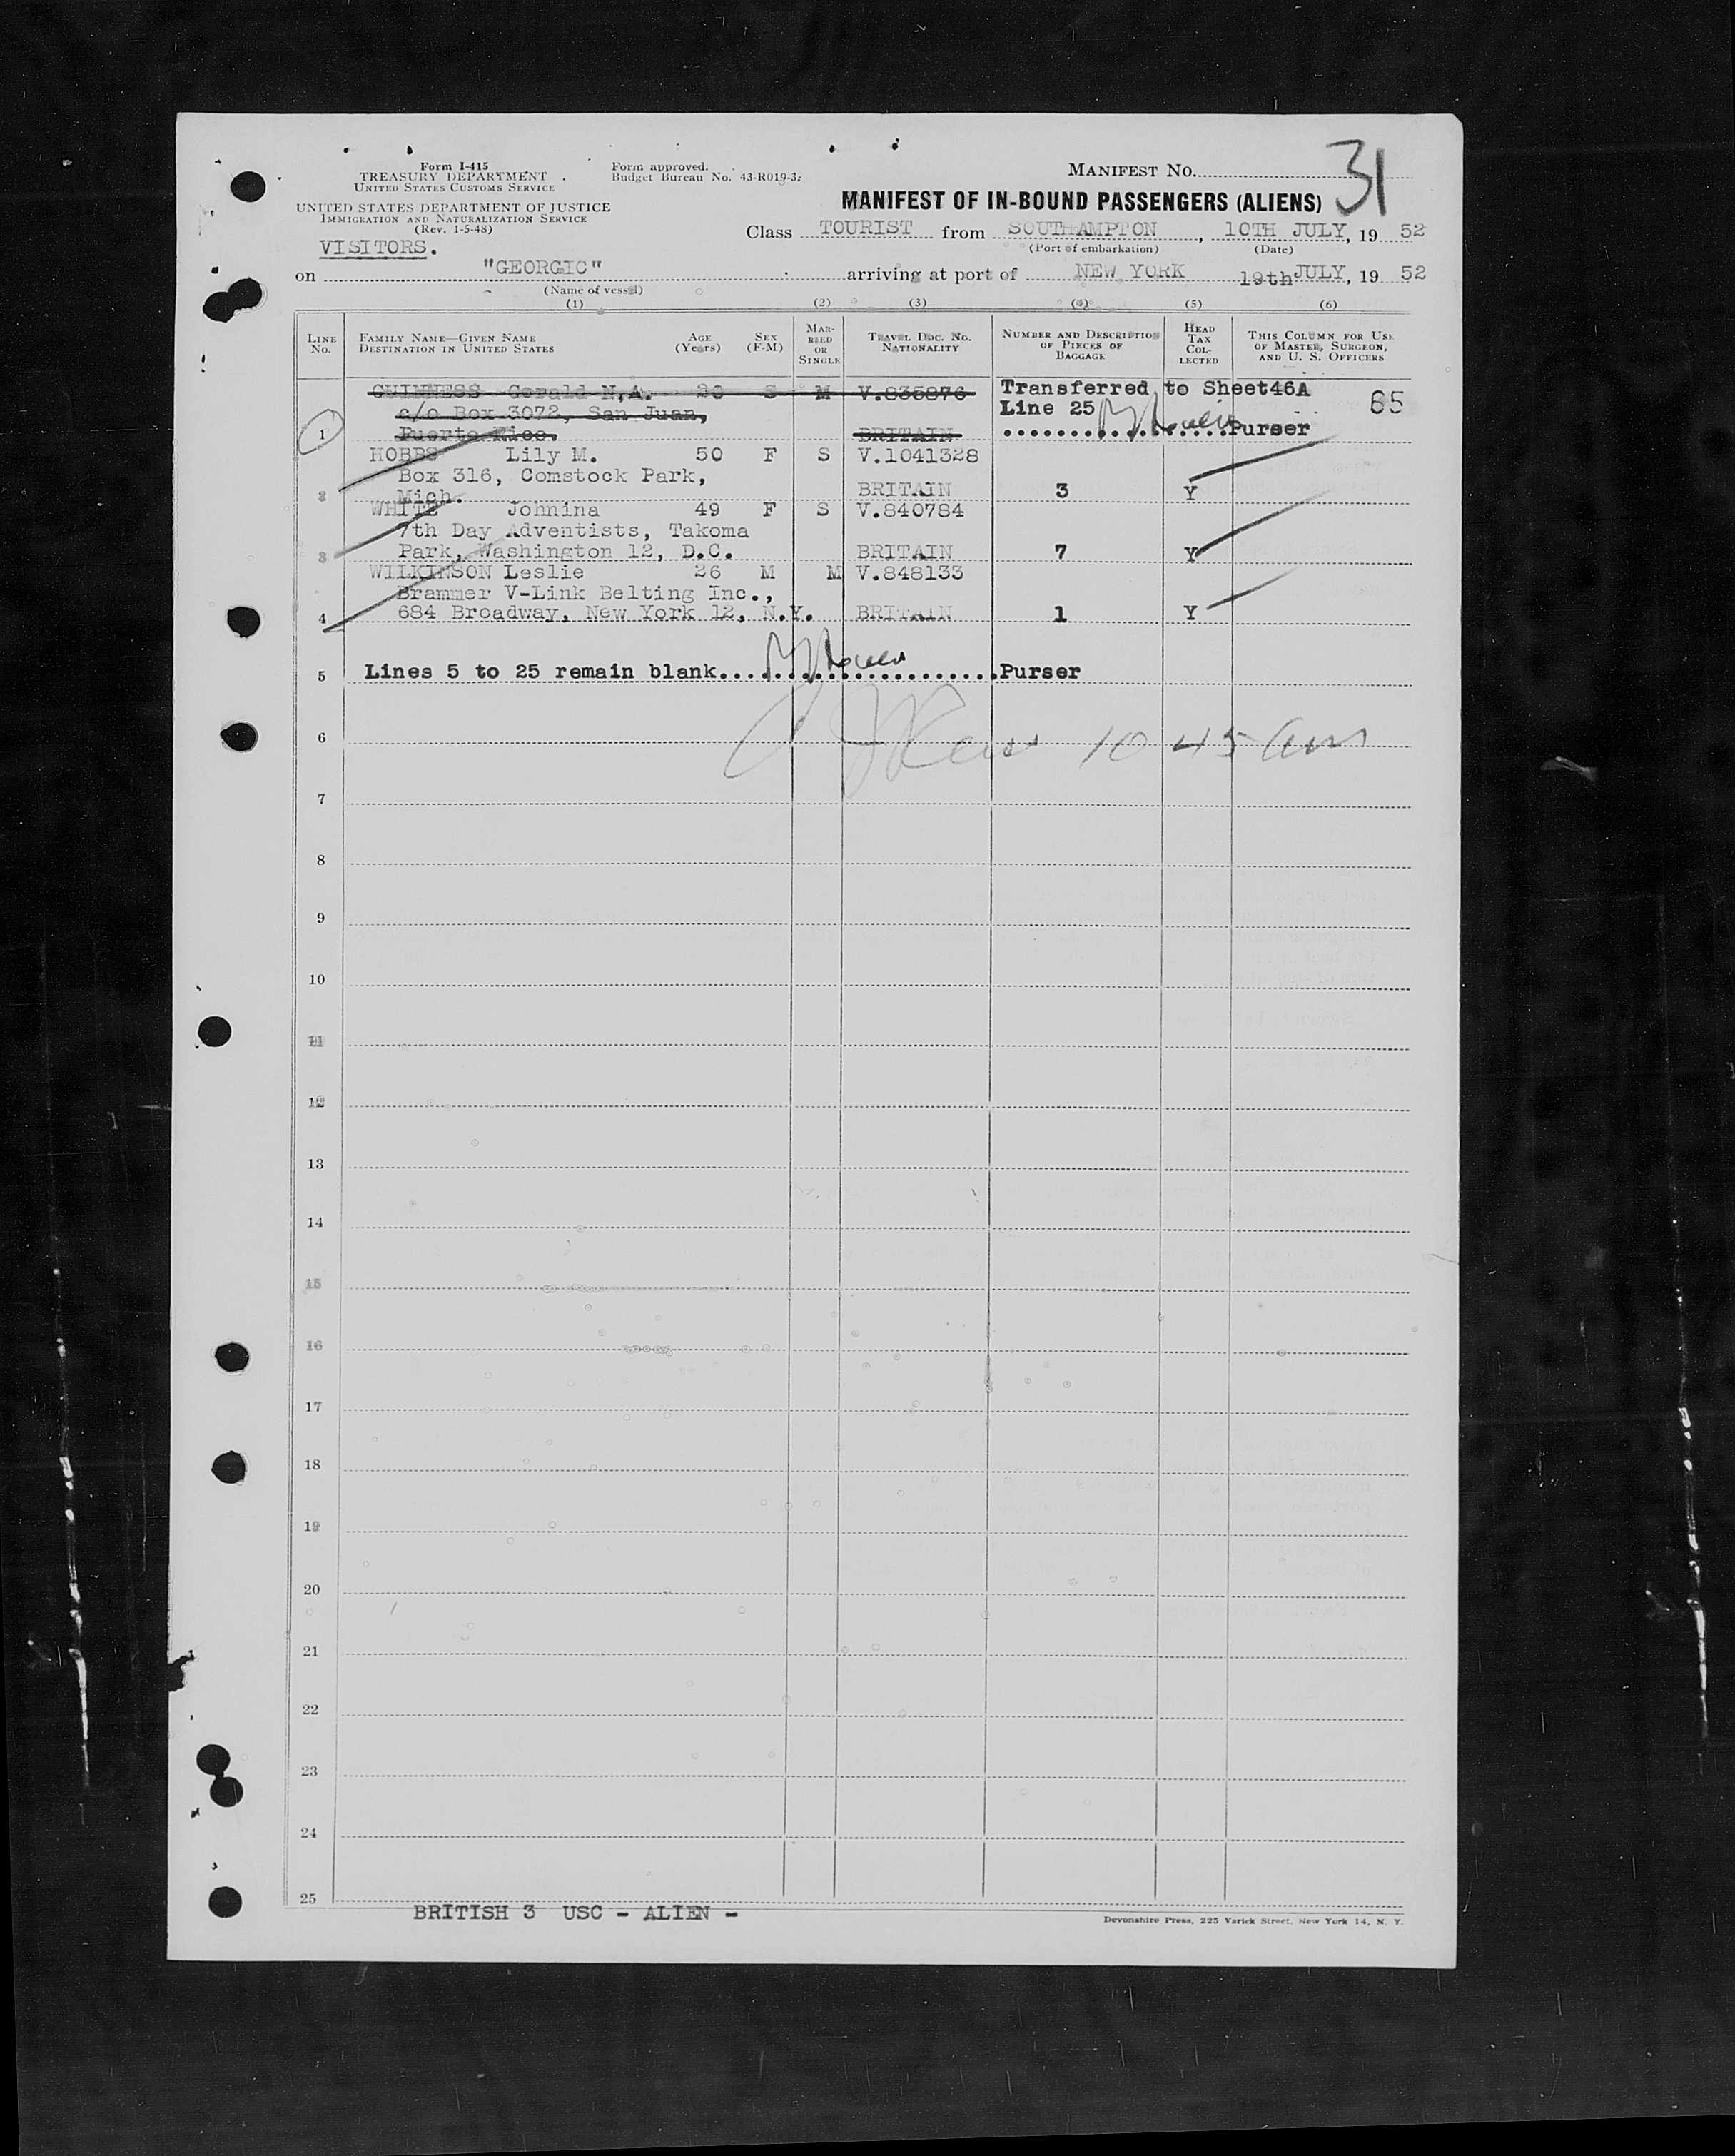 Form I-415
TREASURY DEPARTMENT
UNITED STATES CUSTOMS SERVICE
UNITED STATES DEPARTMENT OF JUSTICE
IMMIGRATION AND NATURALIZATION SERVICE
(Rev. 1-5-48)
Form approved.
Budget Bureau No. 43-R019-3.
MANIFEST NO. 31
MANIFEST OF IN-BOUND PASSENGERS (ALIENS)
Class TOURIST from SOUTHAMPTON, 10TH JULY, 19 52
(Port of embarkation) (Date)
VISITORS.
on "GEORGIC" arriving at port of NEW YORK 19th JULY, 19 52
(Name of vessel)
(1) (2) (3) (4) (5) (6)
LINE No. FAMILY NAME—GIVEN NAME DESTINATION IN UNITED STATES AGE (Years) SEX (F-M) MARRIED OR SINGLE TRAVEL DOC. NO. NATIONALITY NUMBER AND DESCRIPTION OF PIECES OF BAGGAGE HEAD TAX COLLECTED THIS COLUMN FOR USE OF MASTER, SURGEON, AND U. S. OFFICERS
GUINNESS Gerald N.A. 20 S M V.835876 Transferred to Sheet46A 65
c/o Box 3072, San Juan, Line 25
1 Puerto Rico. BRITAIN Purser
HOBBS Lily M. 50 F S V.1041328
Box 316, Comstock Park,
2 Mich. BRITAIN 3 Y
WHITE Johnina 49 F S V.840784
7th Day Adventists, Takoma
3 Park, Washington 12, D.C. BRITAIN 7 Y
WILKINSON Leslie 26 M M V.848133
Brammer V-Link Belting Inc.,
4 684 Broadway, New York 12, N.Y. BRITAIN 1 Y
5 Lines 5 to 25 remain blank.....................Purser
6 10 45 am
7
8
9
10
11
12
13
14
15
16
17
18
19
20
21
22
23
24
25
BRITISH 3 USC - ALIEN -
Devonshire Press, 225 Varick Street, New York 14, N. Y.